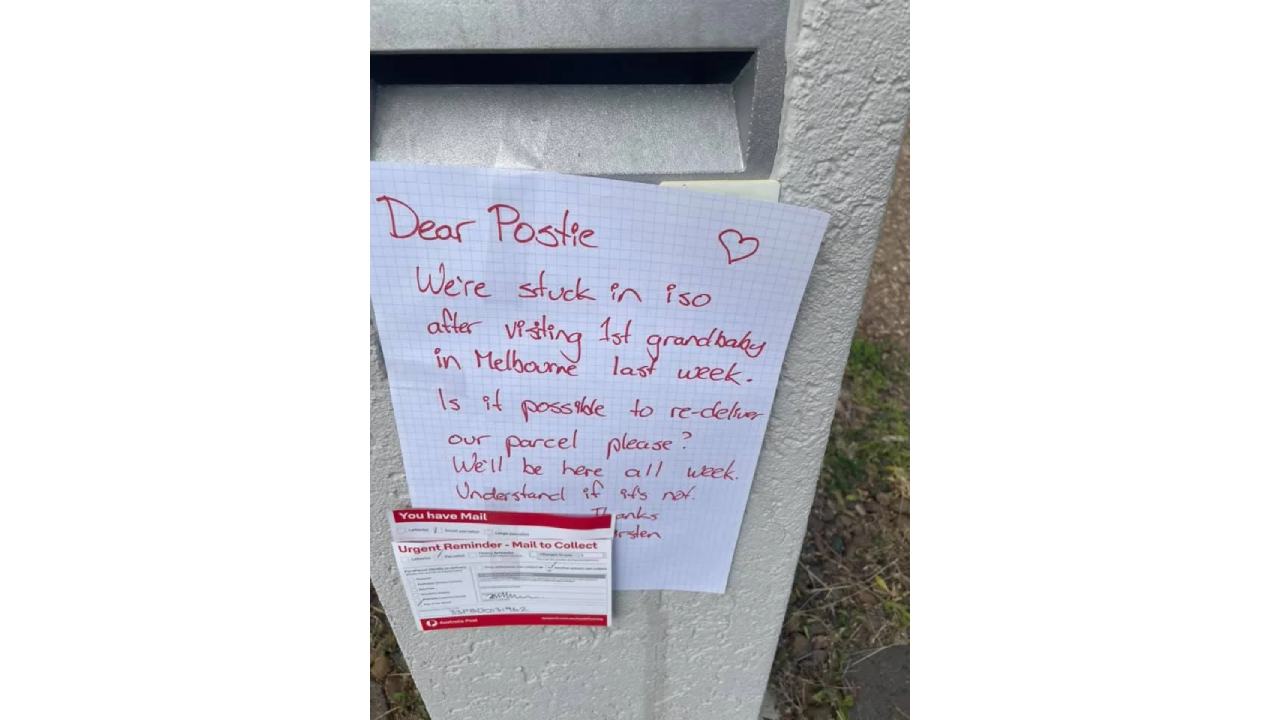 Dear Postie
We're stuck in iso
after visiting 1st grandbaby
in Melbourne last week.
Is it possible to re-deliver
our parcel please?
We'll be here all week.
Understand if it's not.
Thanks
You have Mail
Urgent Reminder - Mail to Collect
Australia Post